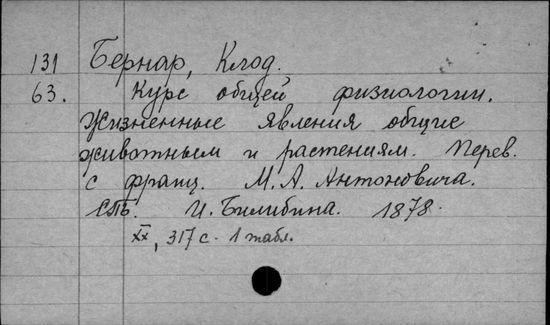 131 Бернар, Клод.
63. Курс общей физиологии.
Жизненные явления общие
животным и растениям. Перев.
с франц. М. А. Антоновича.
СПб. И. Билибина. 1878.
XX, 317 с. 1 табл.